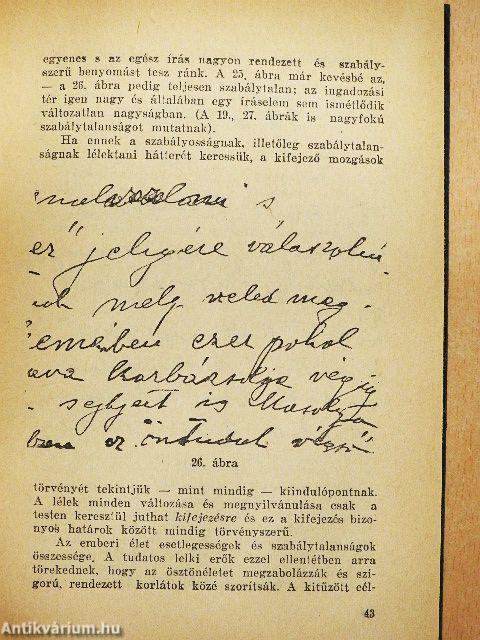 egyenes s az egész írás nagyon rendezett és szabály-
szerű benyomást tesz ránk. A 25. ábra már kevésbé az,
— a 26. ábra pedig teljesen szabálytalan; az ingadozási
tér igen nagy és általában egy íráselem sem ismétlődik
változatlan nagyságban. (A 19., 27. ábrák is nagyfokú
szabálytalanságot mutatnak).
Ha ennek a szabályosságnak, illetőleg szabálytalan-
ságnak lélektani hátterét keressük, a kifejező mozgások
s
er" jeligére
mely veled meg-
ezer pokol
korbácsolja végig
is
az öntudat végső
26. ábra
törvényét tekintjük — mint mindig — kiindulópontnak.
A lélek minden változása és megnyilvánulása csak a
testen keresztül juthat kifejezésre és ez a kifejezés bizo-
nyos határok között mindig törvényszerű.
Az emberi élet esetlegességek és szabálytalanságok
összessége. A tudatos lelki erők ezzel ellentétben arra
törekednek, hogy az ösztönéletet megzabolázzák és szi-
gorú, rendezett korlátok közé szorítsák. A kitűzött cél-
43
Antikvárium.hu